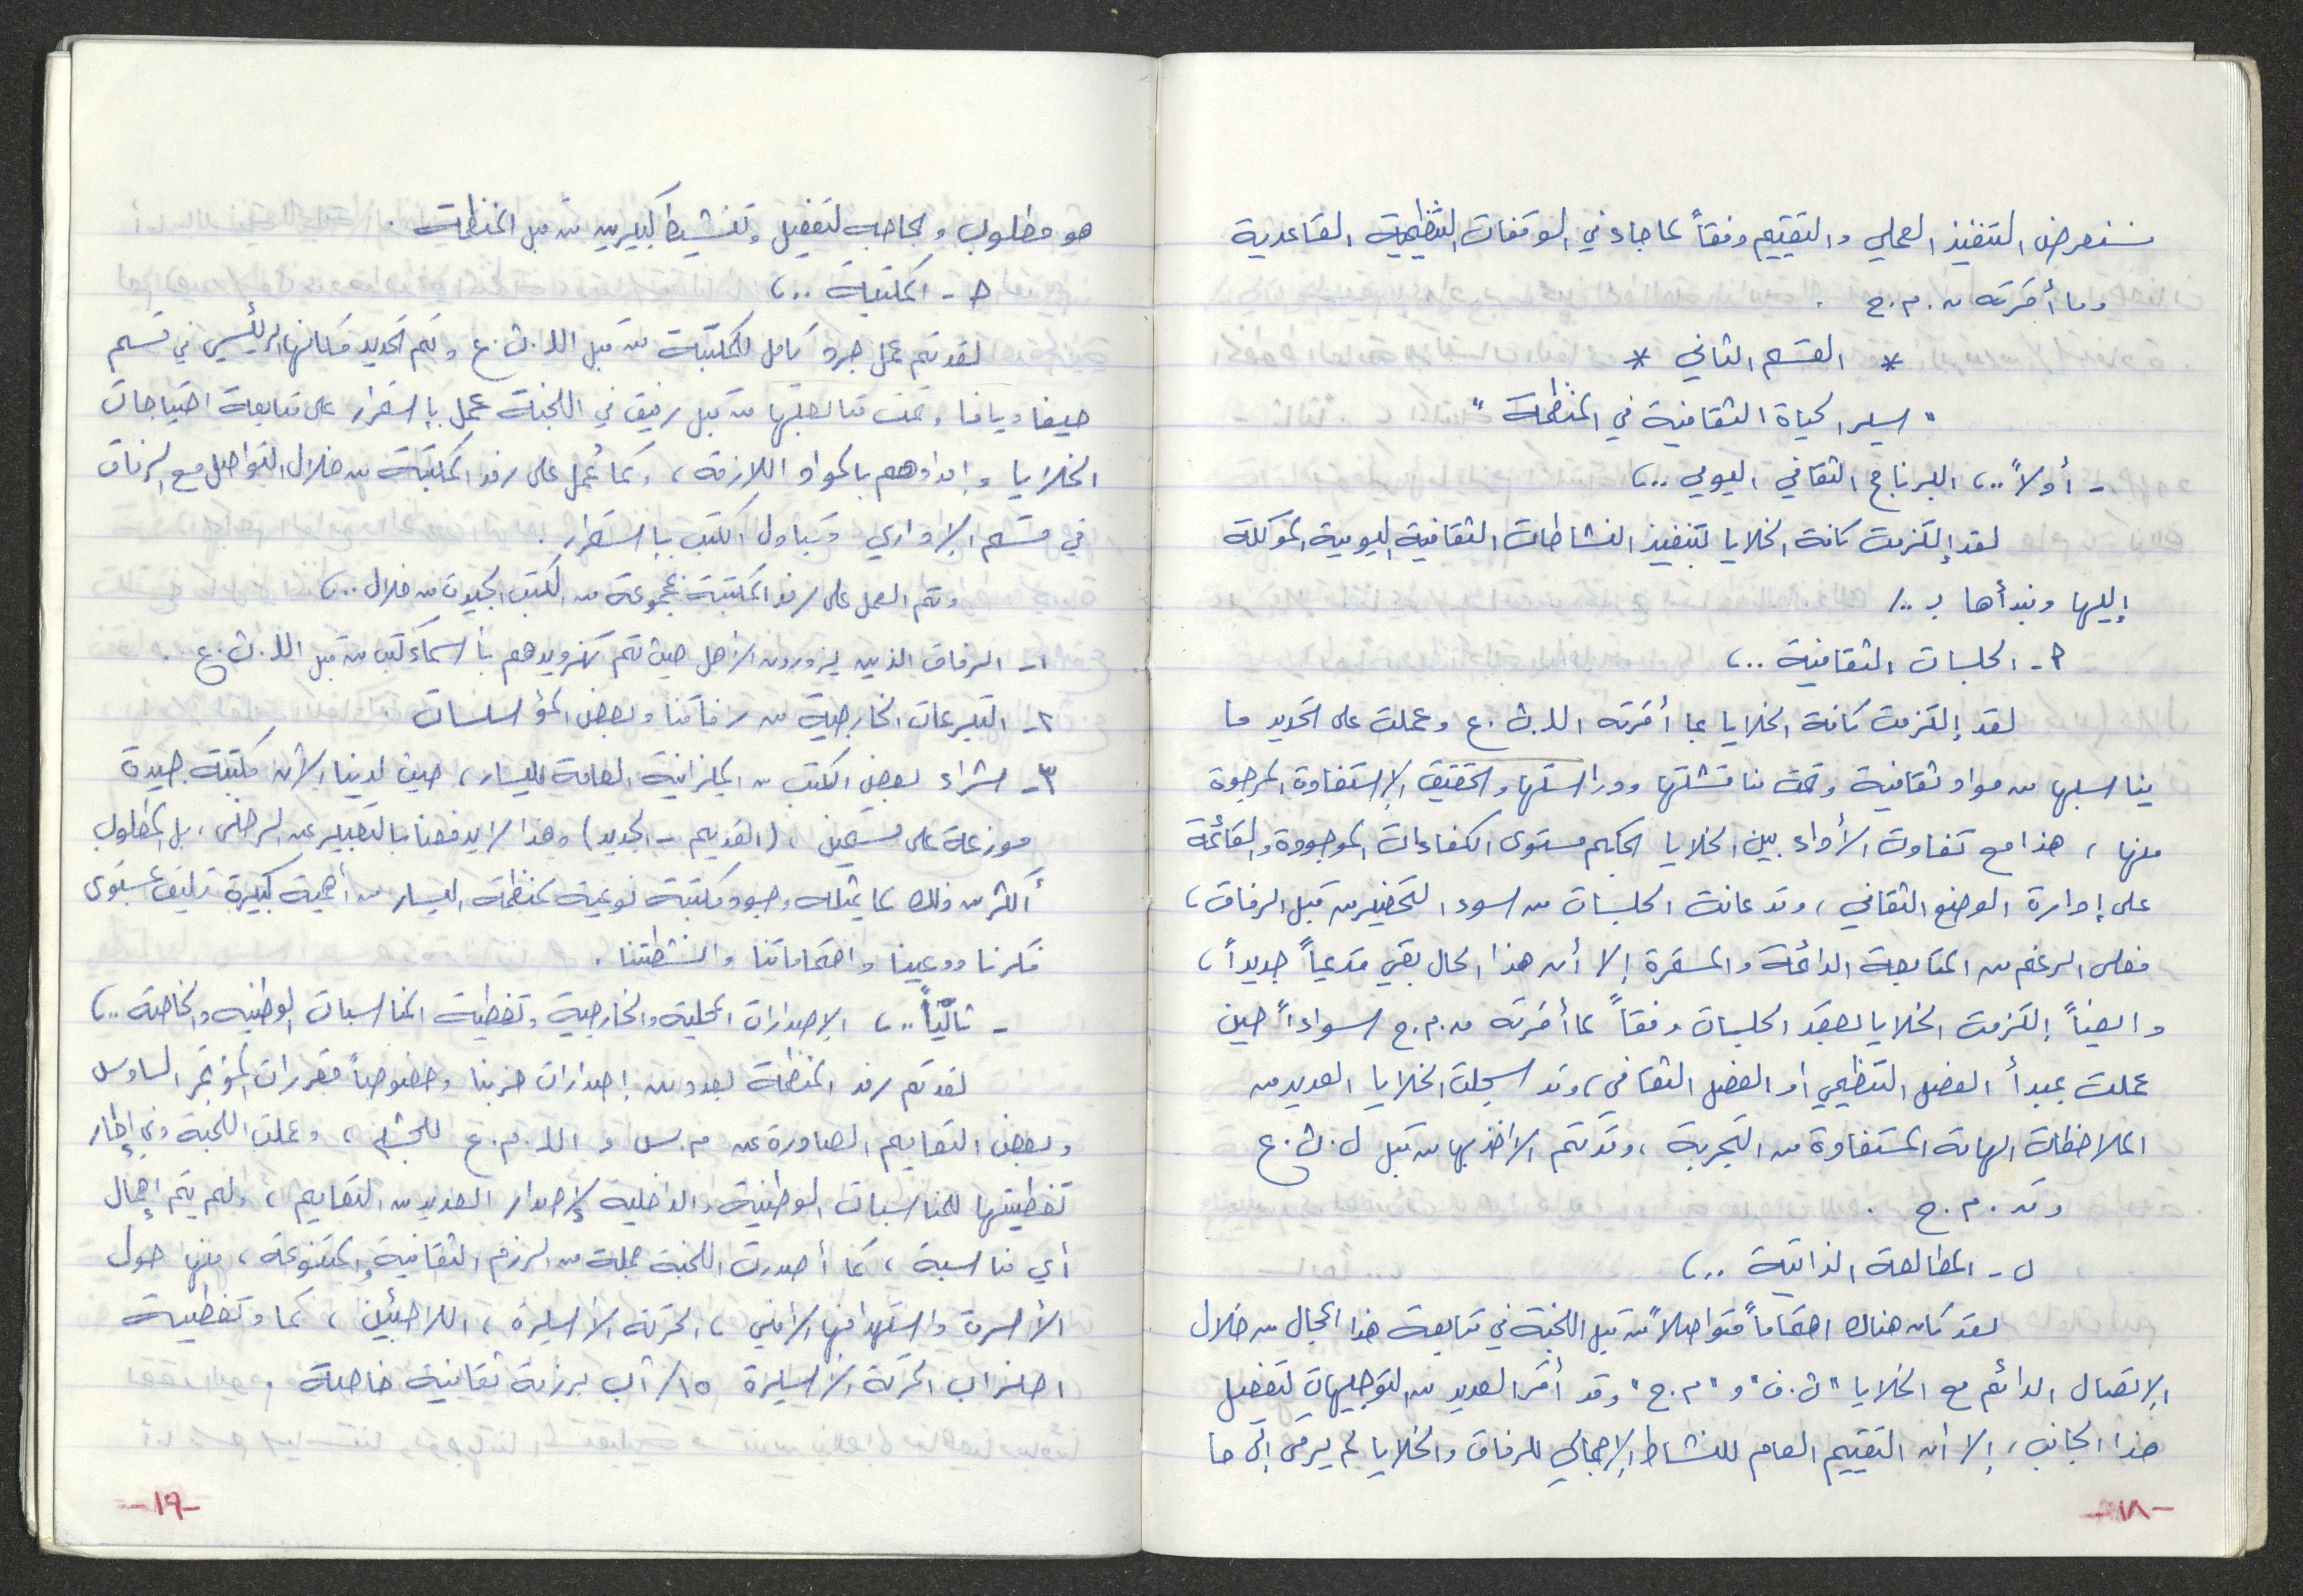 سنعرض التنفيذ العملي والتقييم وفقاً لما جاء في الوقفات التنظيمية القاعدية
وما أقرته م.ج .
* القسم الثاني *
" سير الحياة الثقافية في المنظمة "
- أولاً ..، البرنامج الثقافي اليومي ..،
لقد إلتزمت كافة الخلايا بتنفيذ النشاطات الثقافية اليومية الموكلة
إليها ونبدأها بـ ../
أ- الجلسات الثقافية ..،
لقد إلتزمت كافة الخلايا بما أقرته الل.ث.ع وعملت على تحديد ما
يناسبها من مواد ثقافية وتمت مناقشتها ودراستها وتحقيق الإستفادة المرجوة
منها ، هذا مع تفاوت الأداء بين الخلايا بحكم مستوى الكفاءات الموجودة والقائمة
على إدارة الوضع الثقافي ، وقد عانت الجلسات من سوء التحضير من قبل الرفاق ،
فعلى الرغم من المتابعة الدائمة والمستمرة إلا أن هذا الحال بقي قديماً جديداً ،
وايضاً إلتزمت الخلايا بعقد الجلسات وفقاً لما أقرته م.ج سواءاً حين
عملت بمبدأ الفصل التنظيمي او الفصل الثقافي ، وقد سجلت الخلايا العديد من
الملاحظات الهامة المستفادة من التجربة ، وقد تم الاخذ بها من قبل ل.ث.ع
و م.ج .
ب- المطالعة الذاتية ..،
لقد كان هناك اهتماماً متواصلاً من قبل اللجنة في متابعة هذا المجال من خلال
الإتصال الدائم مع الخلايا "ث.ف" و "م.ج" وقد أقر العديد من التوجيهات لتفعيل
هذا الجانب ، إلا أن التقييم العام للنشاط الإجمالي للرفاق والخلايا لم يرقى إلى ما
-١٨-
هو مطلوب وبحاجة لتفعيل وتنشيط كبيرين من قبل المنظمة .
ج- المكتبة ..،
لقد تم عمل جرد كامل للمكتبة من قبل الل.ث.ع وتم تحديد مكانها الرئيسي في قسم
حيفا ويافا وتمت متابعتها من قبل رفيق في اللجنة عمل بإستمرار على متابعة احتياجات
الخلايا وإمدادهم بالمواد اللازمة ، وكما عُمل على رفد المكتبة من خلال التواصل مع الرفاق
في قسم الإداري وتبادل الكتب بإستمرار .
وتم العمل على رفد المكتبة بمجموعة من الكتب الجديدة من خلال ..،
١- الرفاق الذين يزورون الأهل حيث تم تزويدهم بأسماء كتب من قبل الل.ث.ع .
٢- التبرعات الخارجية من رفاقنا وبعض المؤسسات .
٣- شراء بعض الكتب من الميزانية العامة لليسار ، حيث لدينا الآن مكتبة جيدة
موزعة على قسمين ، (القديم - الجديد) وهذا لا يدفعنا بالتعبير عن الرضى ، بل المطلوب
أكثر من ذلك لما يمثله وجود مكتبة نوعية لمنظمة اليسار من أهمية كبيرة تليق بمستوى
فكرنا ووعينا واهتماماتنا وانشطتنا .
- ثانياً ..، الإصدارات المحلية والخارجية وتغطية المناسبات الوطنية والخاصة ..،
لقد تم رفد المنظمة بعدد من إصدارات حزبنا وخصوصاً مقررات المؤتمر السادس
وبعض التعاميم الصادرة عن م.س و الل.م.ع للجبهة ، وعملت اللجنة وفي إطار
تغطيتها للمناسبات الوطنية والداخلية لإصدار العديد من التعاميم ، ولم يتم إهمال
أي مناسبة ، كما أصدرت اللجنة جملة من الرزم الثقافية والمتنوعة ، منها حول
الأسرى واستهدافها الأمني ، الحركة الأسيرة ، اللاجئين ، كما وتغطية
اضراب الحركة الأسيرة ١٥/آب برزمة ثقافية خاصة .
-١٩-